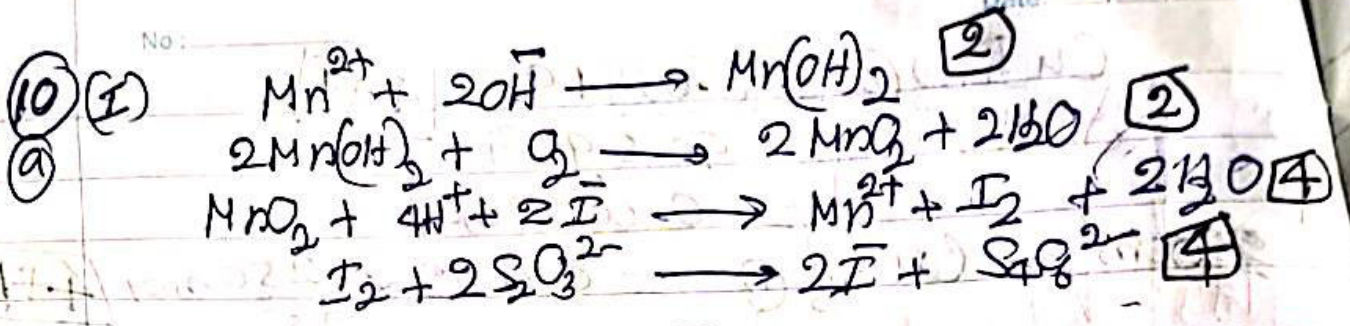 No:
10 (I) Mn²⁺ + 2OH⁻ → Mn(OH)₂ 2
a 2Mn(OH)₂ + O₂ → 2MnO₂ + 2H₂O 2
MnO₂ + 4H⁺ + 2I⁻ → Mn²⁺ + I₂ + 2H₂O 4
I₂ + 2S₂O₃²⁻ → 2I⁻ + S₄O₆²⁻ 4